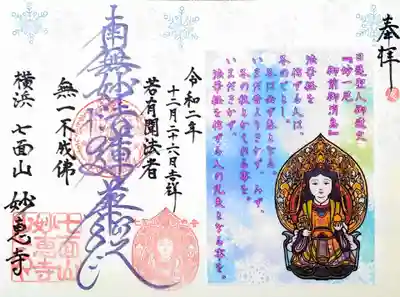 奉拝
日蓮聖人御遺文
『妙一尼
御前御消息』
法華経を
信ずる人は
冬のごとし、
冬は必ず春となる。
いまだ昔よりきかず、みず、
冬の秋とかへれる事を。
いまだきかず、
法華経を信ずる人の凡夫となる事を。
令和二年
十二月二十六日吉祥
若有聞法者
南無妙法蓮華経
無一不成佛
横浜 七面山 妙恵寺
七面山
妙恵寺